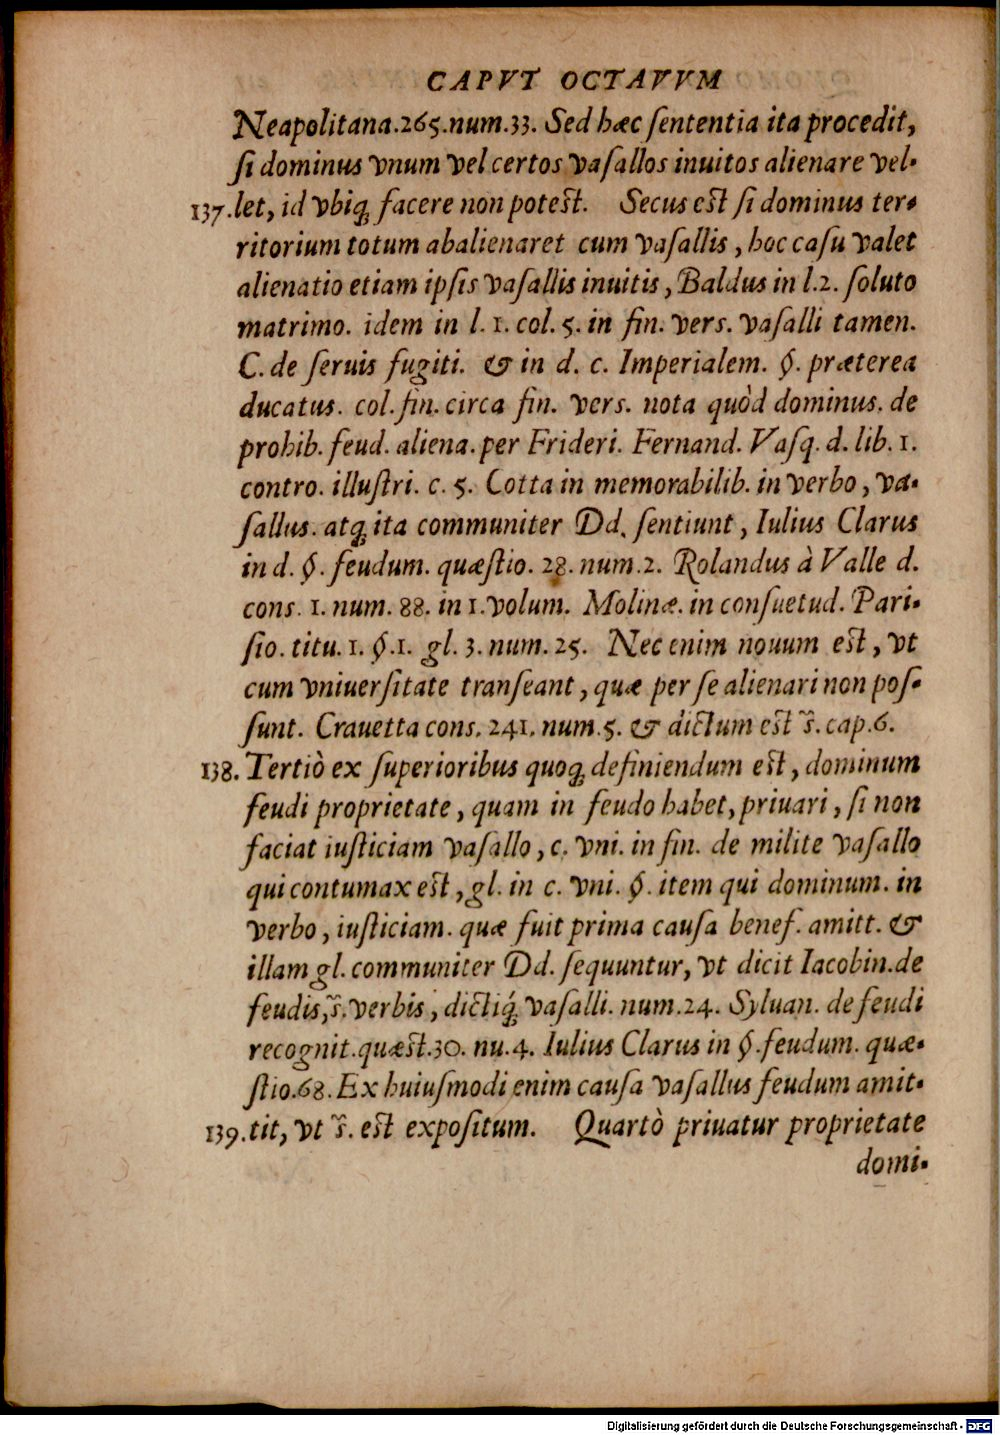 CAPVT OCTAVVM
Neapolitana.265.num.33. Sed hæc ſententia ita procedit,
ſi dominus vnum vel certos vaſallos inuitos alienare vel-
137. let, id vbiq; facere non poteſt. Secus eſt ſi dominus ter-
ritorium totum abalienaret cum vaſallis, hoc caſu valet
alienatio etiam ipſis vaſallis inuitis, Baldus in l.2. ſoluto
matrimo. idem in l. 1. col. 5. in fin. verſ. vaſalli tamen.
C. de ſeruis fugiti. & in d. c. Imperialem. §. præterea
ducatus. col.fin. circa fin. verſ. nota quòd dominus. de
prohib. feud. aliena. per Frideri. Fernand. Vaſq. d. lib. 1.
contro. illuſtri. c. 5. Cotta in memorabilib. in verbo, va-
ſallus. atq; ita communiter Dd. ſentiunt, Iulius Clarus
in d. §. feudum. quæſtio. 28. num.2. Rolandus à Valle d.
conſ. 1. num. 88. in 1. volum. Molinæ. in conſuetud. Pari-
ſio. titu. 1. §.1. gl. 3. num. 25. Nec enim nouum eſt, vt
cum vniuerſitate tranſeant, quæ per ſe alienari non poſ-
ſunt. Crauetta conſ. 241. num.5. & dictum eſt s̃. cap.6.
138. Tertiò ex ſuperioribus quoq; definiendum eſt, dominum
feudi proprietate, quam in feudo habet, priuari, ſi non
faciat iuſticiam vaſallo, c. vni. in fin. de milite vaſallo
qui contumax eſt, gl. in c. vni. §. item qui dominum. in
verbo, iuſticiam. quæ fuit prima cauſa benef. amitt. &
illam gl. communiter Dd. ſequuntur, vt dicit Iacobin. de
feudis, s̃. verbis, dictiq́; vaſalli. num.24. Syluan. de feudi
recognit. quæſt.30. nu.4. Iulius Clarus in §.feudum. quæ-
ſtio.68. Ex huiuſmodi enim cauſa vaſallus feudum amit-
139. tit, vt s̃. eſt expoſitum. Quartò priuatur proprietate
domi-
Digitalisierung gefördert durch die Deutsche Forschungsgemeinschaft - DFG